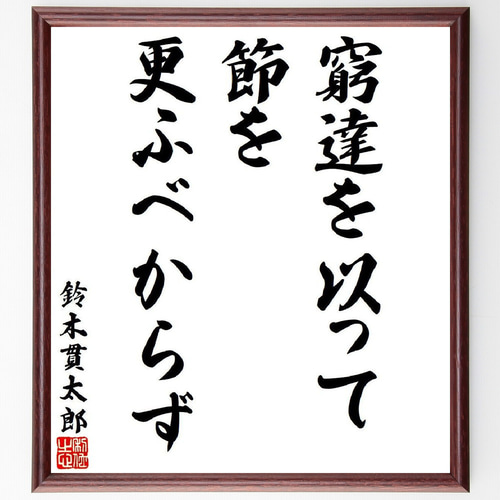 窮達を以って
節を
更ふべからず
鈴木貫太郎